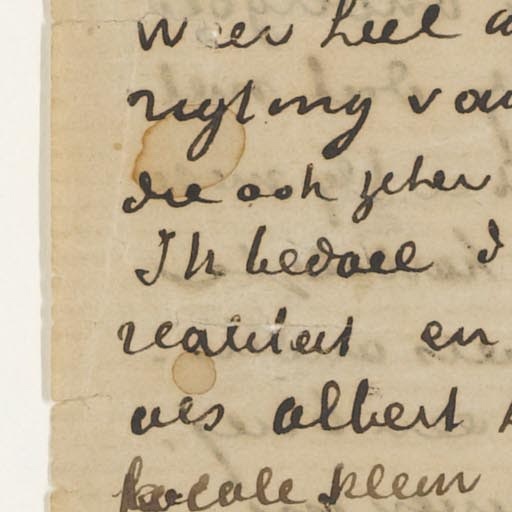 weer heel a
rigting va
die ook zeker
Ik bedoel d
realiteit en
als albert
locale klein